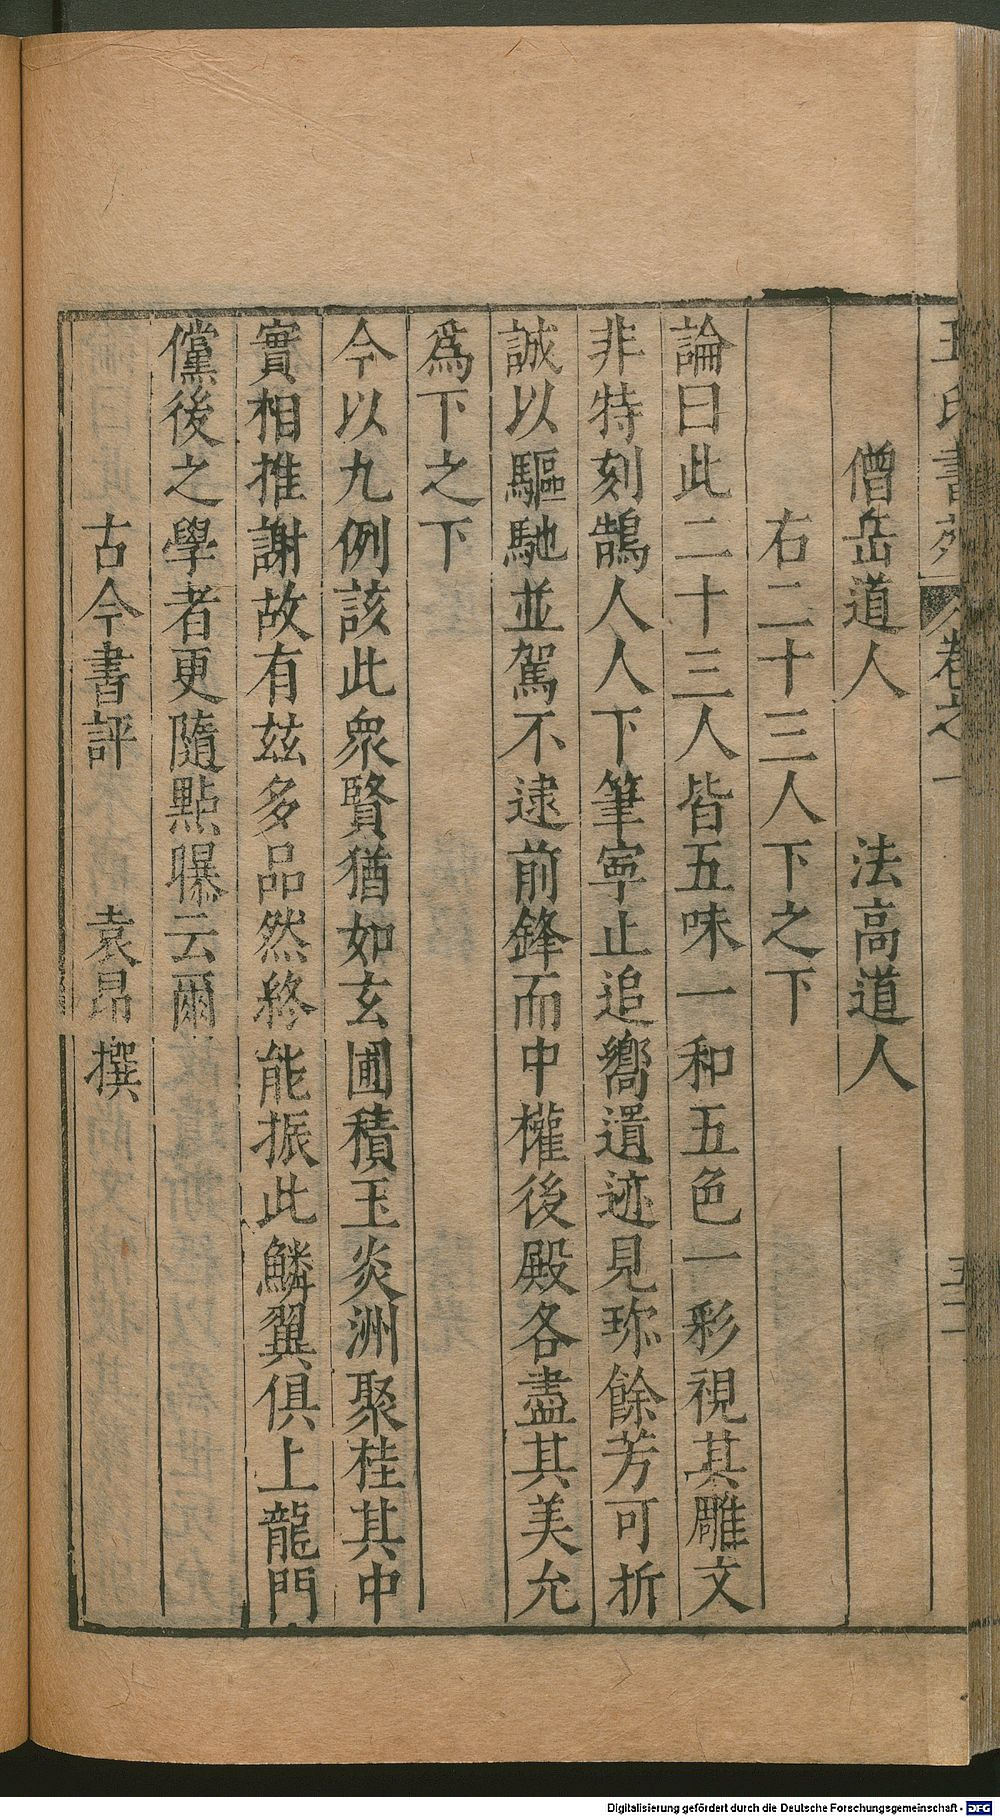 王氏書苑 卷之一 五十一
僧岳道人 法高道人
右二十三人下之下
論曰此二十三人皆五味一和五色一彩視其雕文
非特刻鵠人人下筆寧止追嚮遺迹見珎餘芳可折
誠以驅馳並駕不逮前鋒而中權後殿各盡其美允
爲下之下
今以九例該此衆賢猶如玄圃積玉炎洲聚桂其中
實相推謝故有茲多品然終能振此鱗翼俱上龍門
儻後之學者更隨點曝云爾
古今書評 袁昂撰
Digitalisierung gefördert durch die Deutsche Forschungsgemeinschaft - DFG